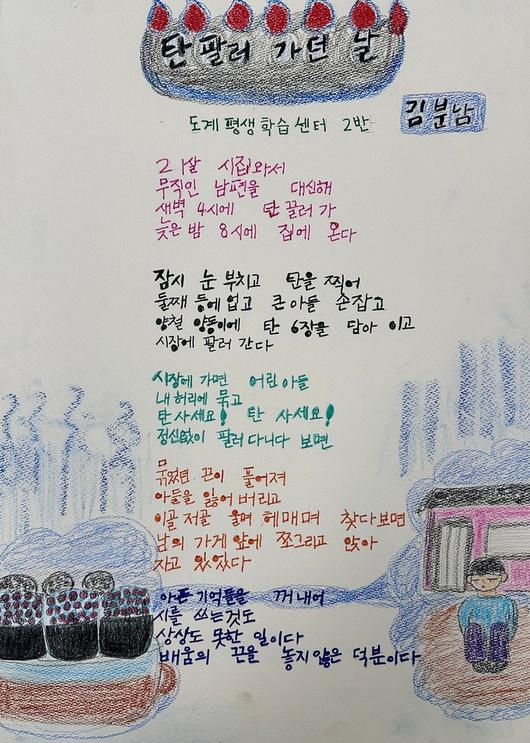 탄 팔러 가던 날
김분남
도계 평생학습센터 2반
21살 시집와서
무직인 남편을 대신해
새벽 4시에 탄 끌러 가
늦은 밤 8시에 집에 온다
잠시 눈 부치고 탄을 찍어
둘째 등에 업고 큰아들 손잡고
양철 양동이에 탄 6장을 담아 이고
시장에 팔러 간다
시장에 가면 어린 아들
내 허리에 묶고
탄 사세요! 탄 사세요!
정신없이 팔러 다니다 보면
묶었던 끈이 풀어져
아들을 잃어 버리고
이골 저골 울며 헤매며 찾다보면
남의 가게 앞에 쪼그리고 앉아
자고 있었다
아픈 기억들을 꺼내어
시를 쓰는것도
상상도 못한 일이다
배움의 끈을 놓지않은 덕분이다